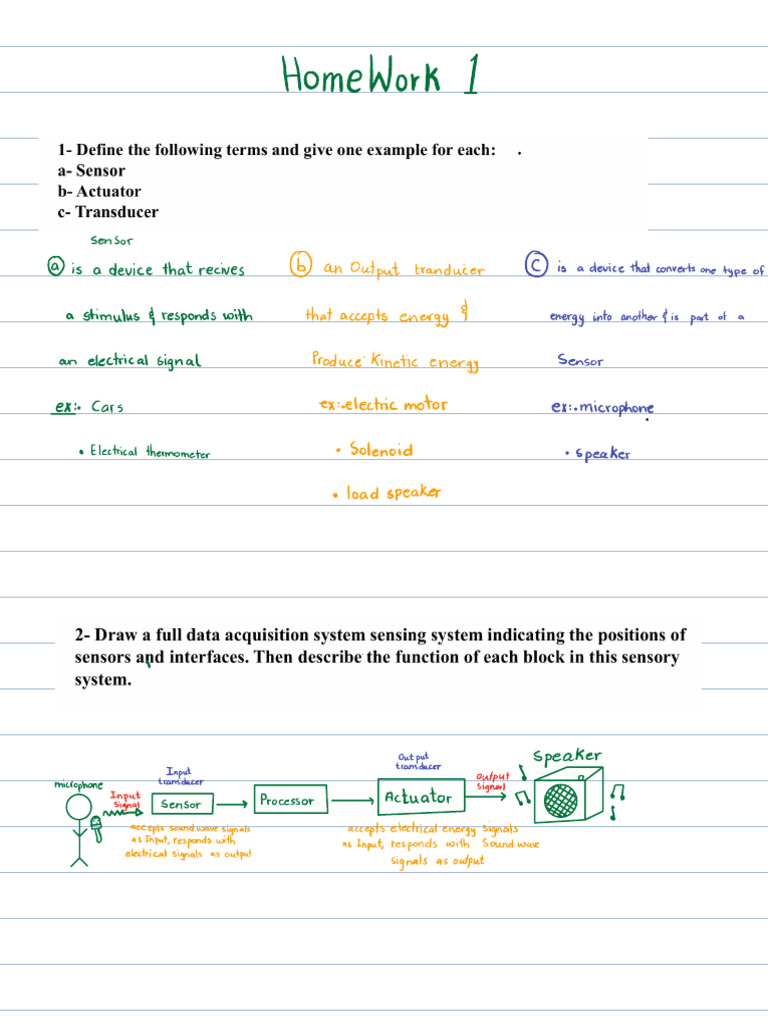 HomeWork 1
1- Define the following terms and give one example for each: .
a- Sensor
b- Actuator
c- Transducer
Sensor
a is a device that recives
a stimulus & responds with
an electrical signal
ex:. Cars
• Electrical thermometer
b an Output tranducer
that accepts energy &
Produce Kinetic energy
ex:. electric motor
• Solenoid
• load speaker
C is a device that converts one type of
energy into another & is part of a
Sensor
ex:. microphone
• speaker
2- Draw a full data acquisition system sensing system indicating the positions of
sensors and interfaces. Then describe the function of each block in this sensory
system.
microphone
Input
Signal
Input
transducer
Sensor
accepts sound wave signals
as Input, responds with
electrical signals as output
Processor
Output
transducer
Actuator
accepts electrical energy signals
as Input, responds with Sound wave
signals as output
Output
Signal
Speaker